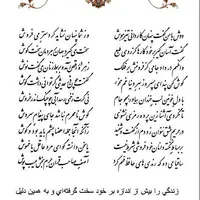 دوش با من گفت پنهان کاردانی تیزهوش وز شما پنهان نشاید کرد سر می فروش
گفت آسان گیر بر خود کارها کز روی طبع سخت می‌گردد جهان بر مردمان سخت کوش
وانگهم در داد جامی کز فروغش بر فلک زهره در رقص آمد و بربط زنان می‌گفت نوش
گوش کن پند ای پسر وز بهر دنیا غم مخور گفتمت چون در حدیثی گر توانی داشت هوش
با دل خونین لب خندان بیاور همچو جام نی گرت زخمی رسد آیی چو چنگ اندر خروش
تا نگردی آشنا زین پرده رمزی نشنوی گوش نامحرم نباشد جای پیغام سروش
در حریم عشق نتوان زد دم از گفت و شنید زانکه آنجا جمله اعضا چشم باید بود و گوش
بر بساط نکته دانان خودفروشی شرط نیست یا سخن دانسته گو ای مرد عاقل یا خموش
ساقیا می ده که رندیهای حافظ فهم کرد آصف صاحب قران جرم بخش عیب پوش
زندگي را بيش از اندازه بر خود سخت گرفته‌اي و به همين دليل